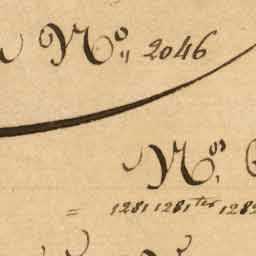 Nº 2046
Nos
= 1281 1281ter 1282